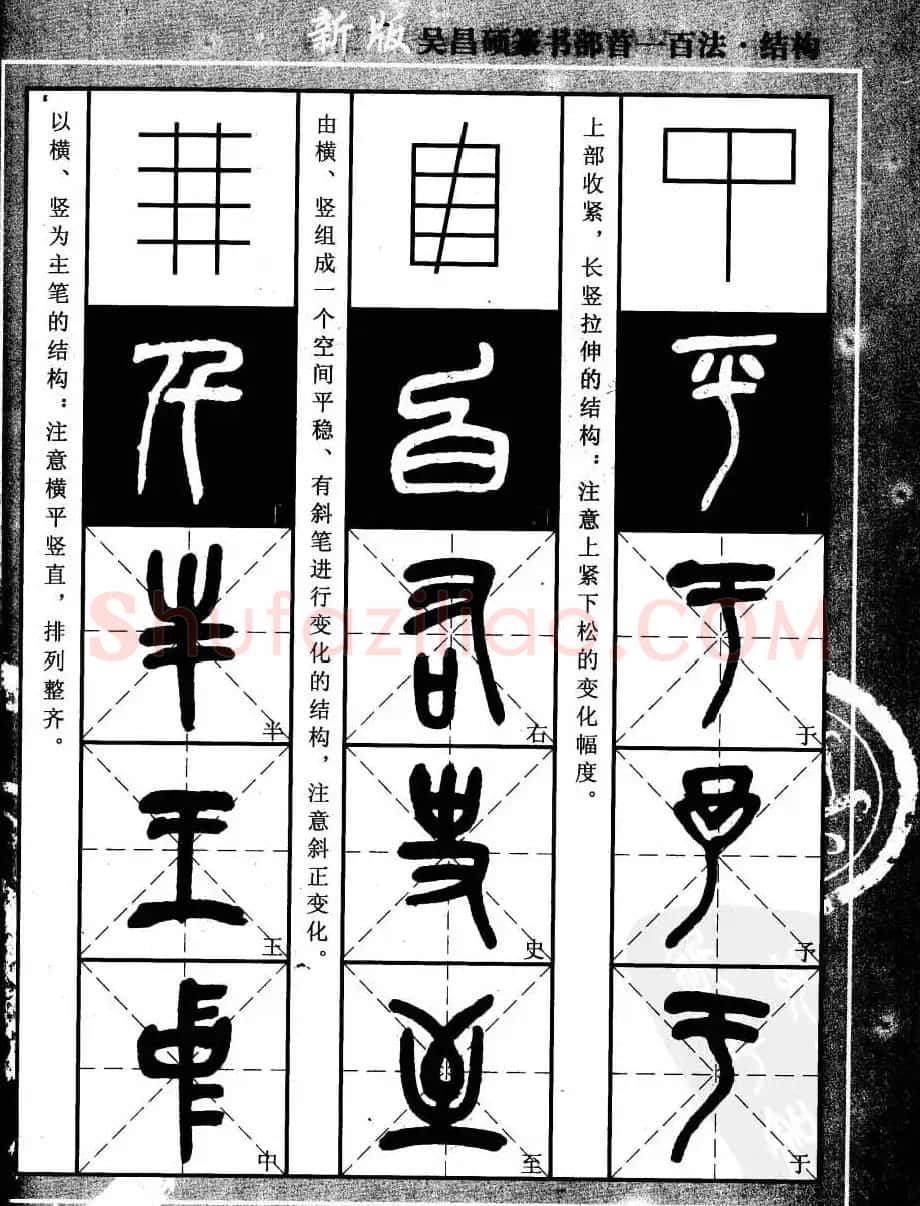 新版 吴昌硕篆书部首一百法·结构
上部收紧，长竖拉伸的结构：注意上紧下松的变化幅度。
于
予
于
由横、竖组成一个空间平稳、有斜笔进行变化的结构，注意斜正变化。
右
史
至
以横、竖为主笔的结构：注意横平竖直，排列整齐。
半
王
中
Shufaziliao.COM